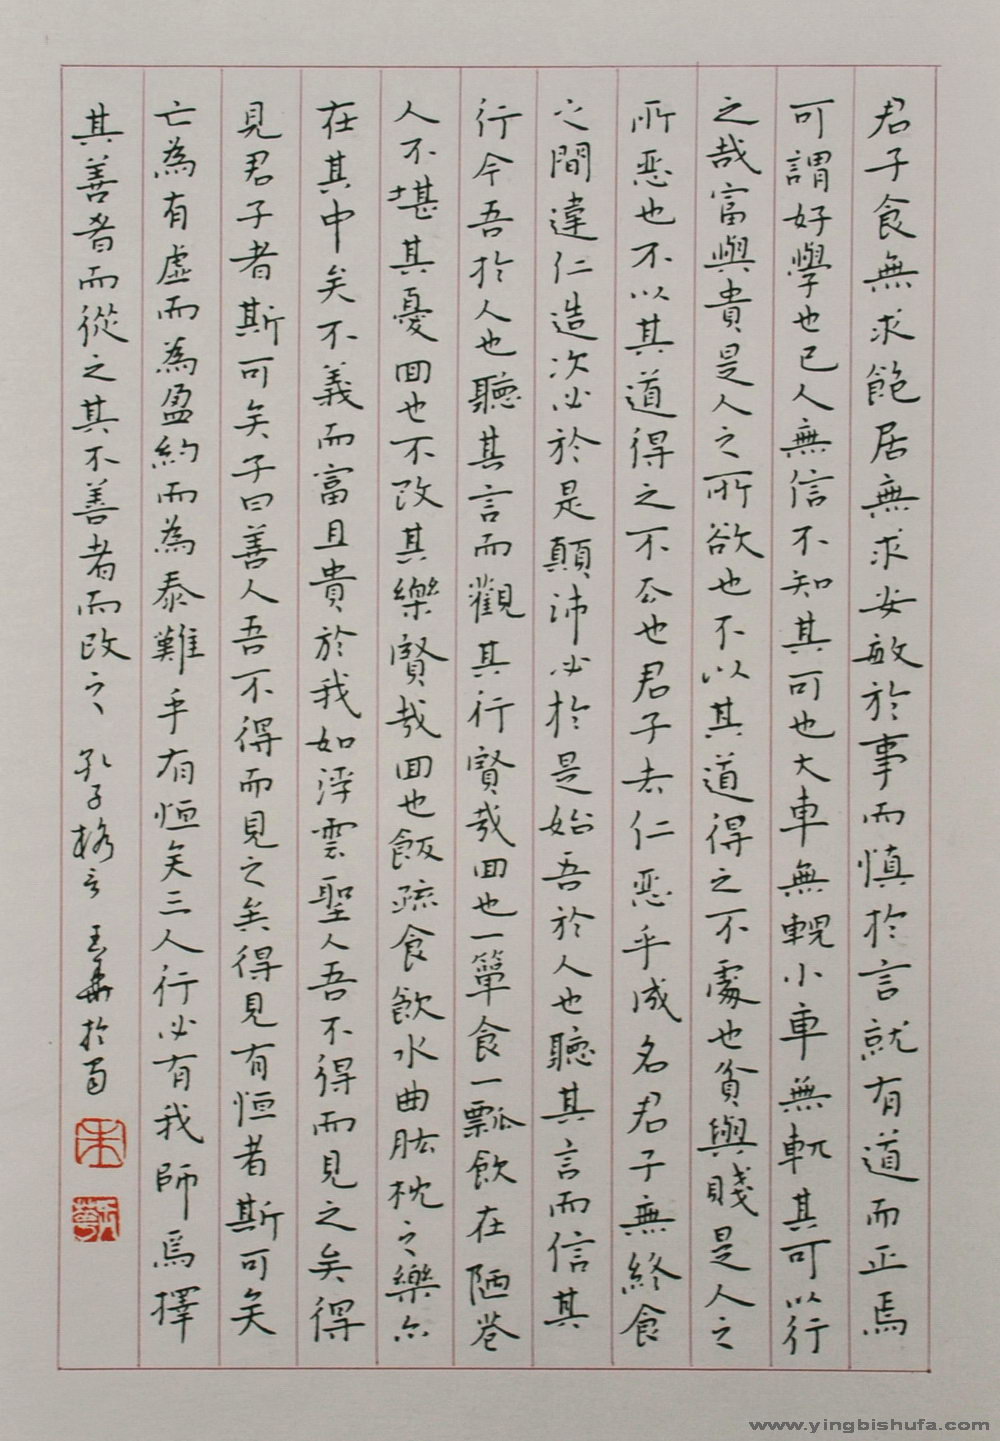 君子食無求飽居無求安敏於事而慎於言就有道而正焉
可謂好學也已人無信不知其可也大車無輗小車無軏其可以行
之哉富與貴是人之所欲也不以其道得之不處也貧與賤是人之
所惡也不以其道得之不去也君子去仁惡乎成名君子無終食
之間違仁造次必於是顛沛必於是始吾於人也聽其言而信其
行今吾於人也聽其言而觀其行賢哉回也一簞食一瓢飲在陋巷
人不堪其憂回也不改其樂賢哉回也飯疏食飲水曲肱枕之樂亦
在其中矣不義而富且貴於我如浮雲聖人吾不得而見之矣得
見君子者斯可矣子曰善人吾不得而見之矣得見有恒者斯可矣
亡為有虛而為盈約而為泰難乎有恒矣三人行必有我師焉擇
其善者而從之其不善者而改之 孔子格言 於
www.yingbishufa.com